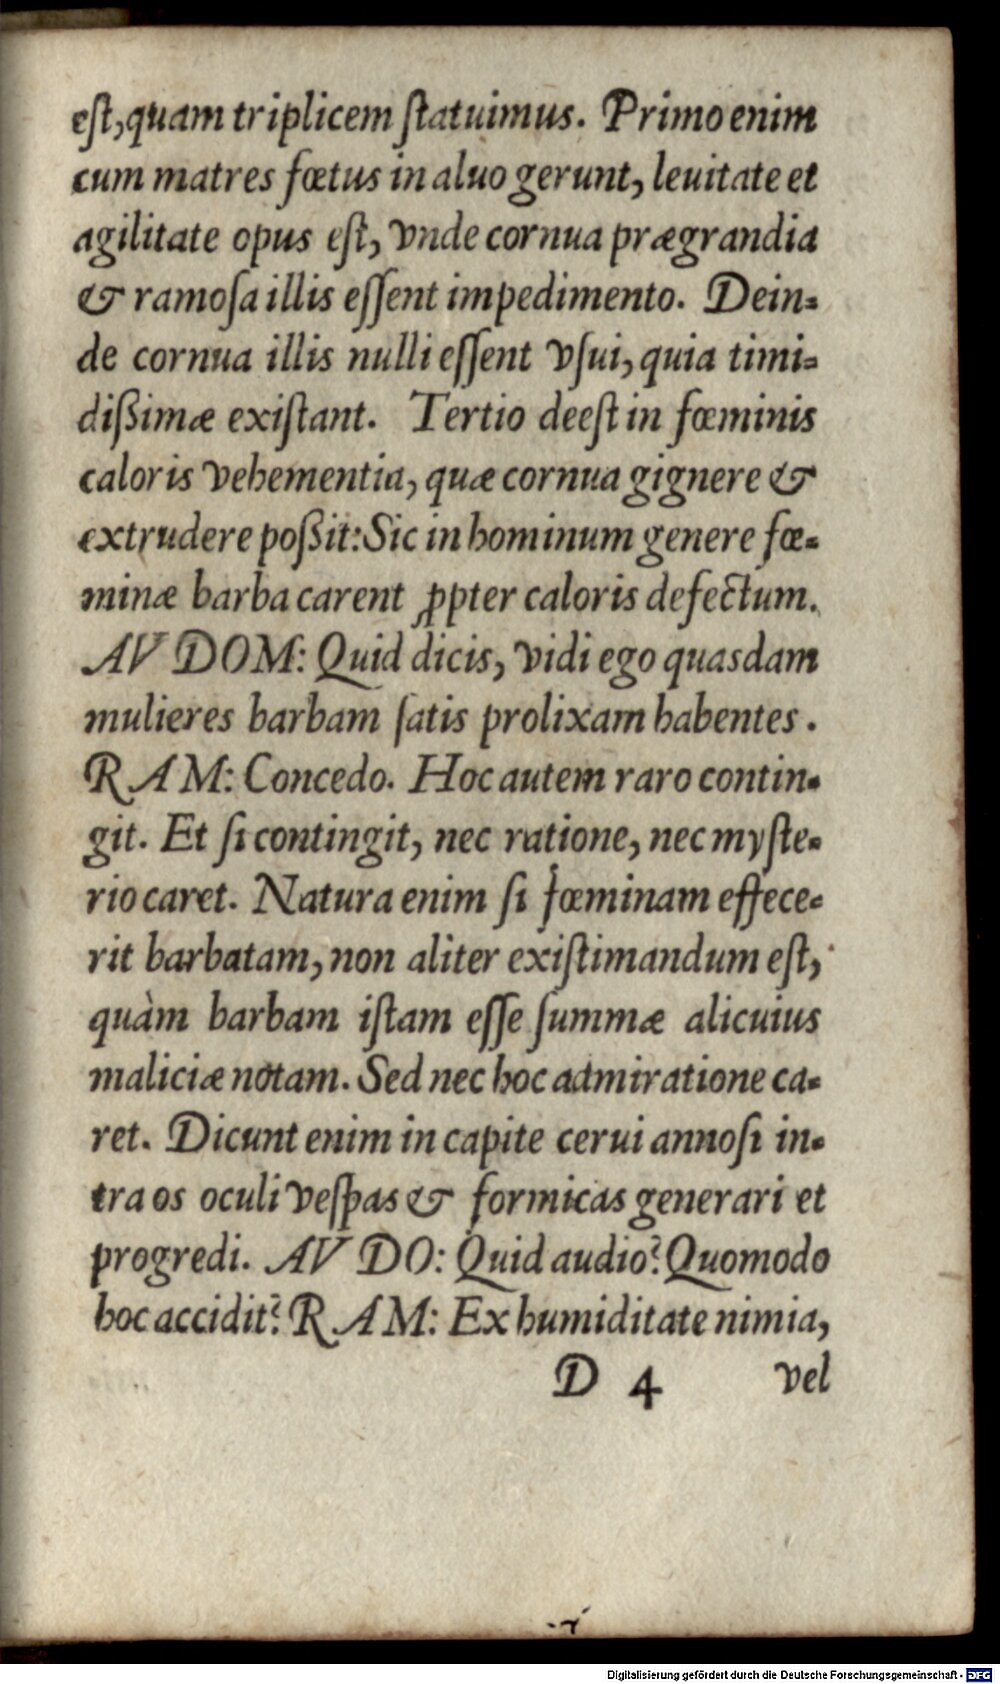 eſt, quam triplicem ſtatuimus. Primo enim
cum matres fœtus in aluo gerunt, leuitate et
agilitate opus eſt, vnde cornua prægrandia
& ramoſa illis eſſent impedimento. Dein-
de cornua illis nulli eſſent vſui, quia timi-
dißimæ exiſtant. Tertio deeſt in fœminis
caloris vehementia, quæ cornua gignere &
extrudere poßit: Sic in hominum genere fœ-
minæ barba carent ꝓpter caloris defectum.
AV DOM: Quid dicis, vidi ego quasdam
mulieres barbam ſatis prolixam habentes.
RAM: Concedo. Hoc autem raro contin-
git. Et ſi contingit, nec ratione, nec myſte-
rio caret. Natura enim ſi fœminam effece-
rit barbatam, non aliter exiſtimandum eſt,
quàm barbam iſtam eſſe ſummæ alicuius
maliciæ notam. Sed nec hoc admiratione ca-
ret. Dicunt enim in capite cerui annoſi in-
tra os oculi veſpas & formicas generari et
progredi. AV DO: Quid audio? Quomodo
hoc accidit? RAM: Ex humiditate nimia,
D 4 vel
Digitalisierung gefördert durch die Deutsche Forschungsgemeinschaft - DFG